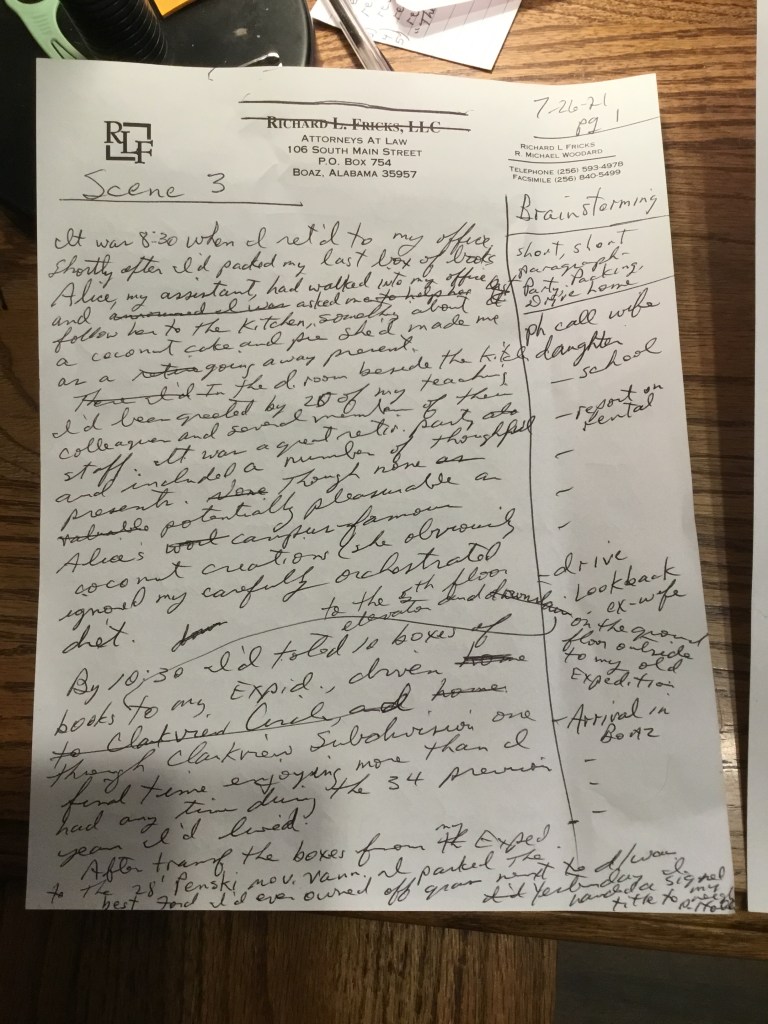 7-26-21
pg 1
RLF
RICHARD L. FRICKS, LLC
ATTORNEYS AT LAW
106 SOUTH MAIN STREET
P.O. BOX 754
BOAZ, ALABAMA 35957
RICHARD L FRICKS
R. MICHAEL WOODARD
TELEPHONE (256) 593-4978
FACSIMILE (256) 840-5499
Scene 3
It was 8:30 when I ret'd to my office
shortly after I'd packed my last box of books
Alice, my assistant, had walked into my office
and announced I was asked me to help her
follow her to the kitchen, something about
a coconut cake and pie she'd made me
as a going away present.
There I'd In the d. room beside the kitch
I'd been greeted by 20 of my teaching
colleagues and several members of their
staff. It was a great retir. party
and included a number of thoughtful
presents. None Though none as
valuable potentially pleasurable as
Alice's campus-famous
coconut creations (she obviously
ignored my carefully orchestrated
diet.
to the 5th floor
elevator and downstairs
By 10:30 I'd toted 10 boxes of
books to my Exped., driven home
to Clarkview Circle, and home
through Clarkview Subdivision one
final time enjoying more than I
had any time during the 34 previous
years I'd lived.
After transf the boxes from my Exped.
to the 28' Penski mov. vann, I parked the
best Ford I'd ever owned off grass next to d/way
did yesterday I signed
handed a
title to my
Brainstorming
short, short
paragraph-
Party, Packing,
Drive home
ph call wife
daughter
- school
- report on
rental
-
-
-
- drive
. Lookback
. ex-wife
on the ground
floor outside
to my old
Expedition
- Arrival in
Boaz
-
-
-